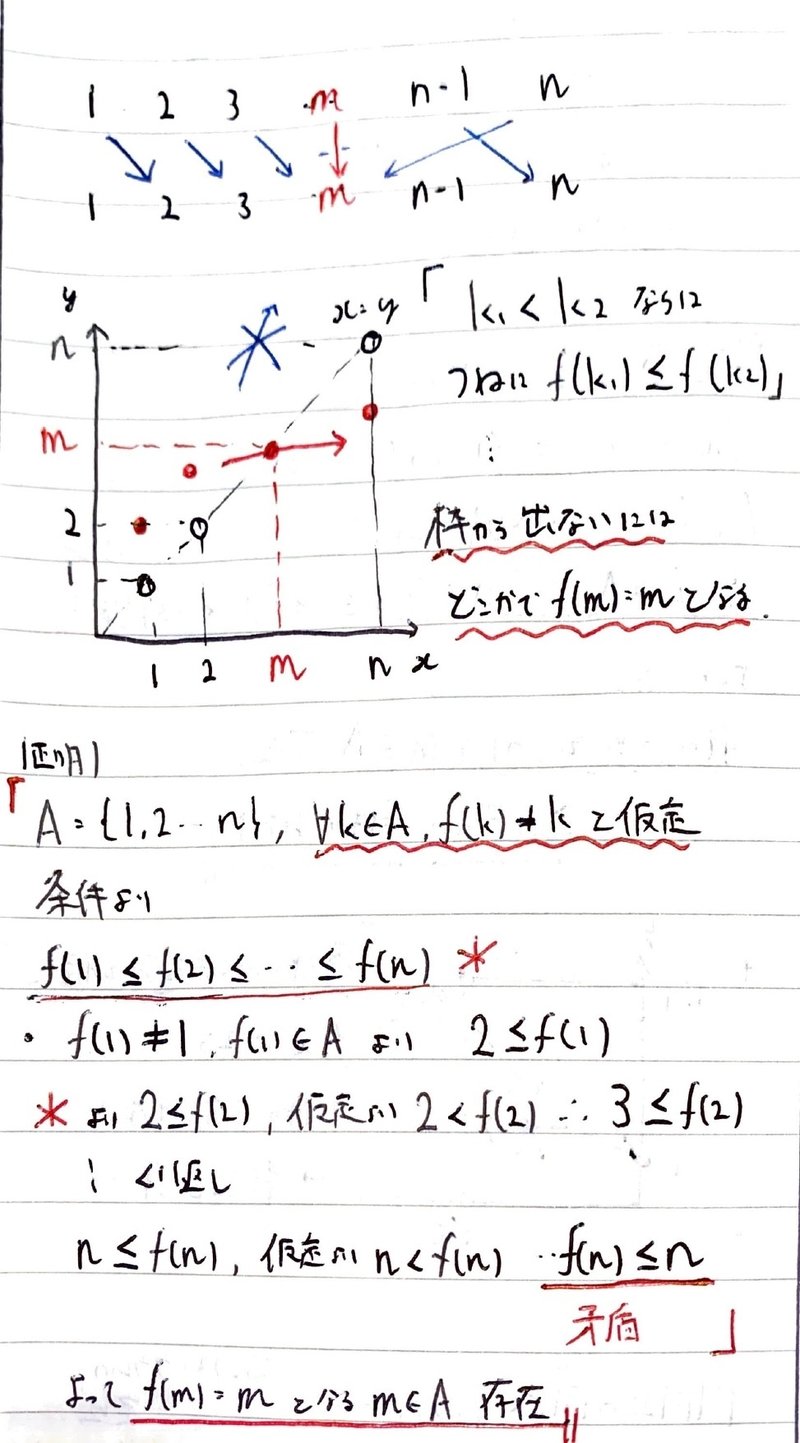 1 2 3 m n-1 n
1 2 3 m n-1 n
y
n
x=y
m
2
1
1 2 m n x
「k₁<k₂ ならば
つねに f(k₁)≤f(k₂)」
⋮
枠から出ないには
どこかで f(m)=m となる.
(証明)
「A={1,2‥n}, ∀k∈A, f(k)≠k と仮定
条件より
f(1)≤f(2)≤‥≤f(n) *
・f(1)≠1, f(1)∈A より 2≤f(1)
* より 2≤f(2), 仮定より 2<f(2) ∴ 3≤f(2)
⋮ くり返し
n≤f(n), 仮定より n<f(n) ‥f(n)≤n
矛盾 」
よって f(m)=m となる m∈A 存在